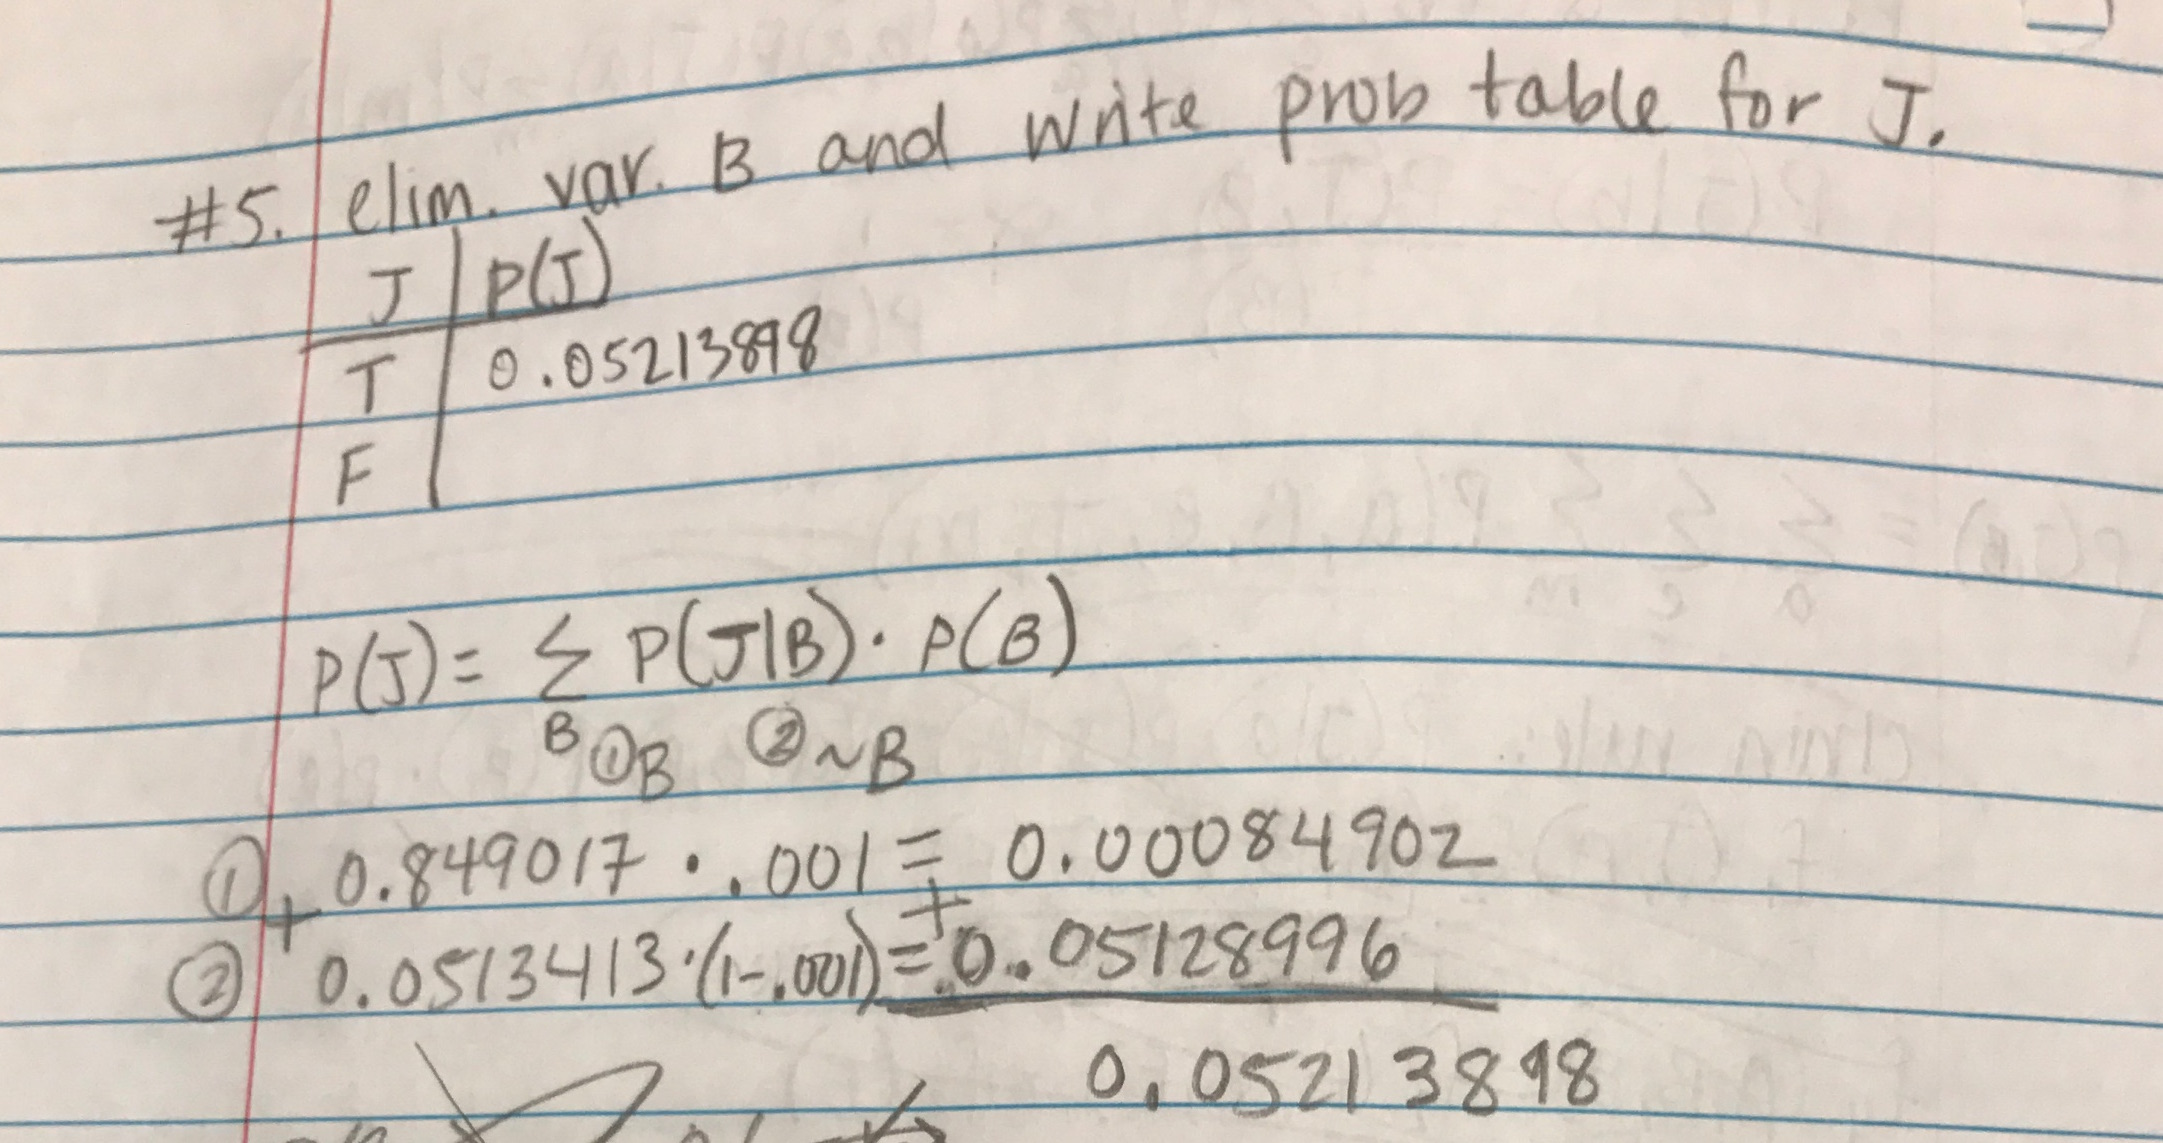 #5. elim. var. B and write prob table for J.
J | P(J)
T | 0.05213898
F |
P(J) = Σ P(J|B) · P(B)
B ①B ②~B
① 0.849017 · .001 = 0.00084902
+ +
② 0.0513413·(1-.001) = 0.05128996
0.05213898